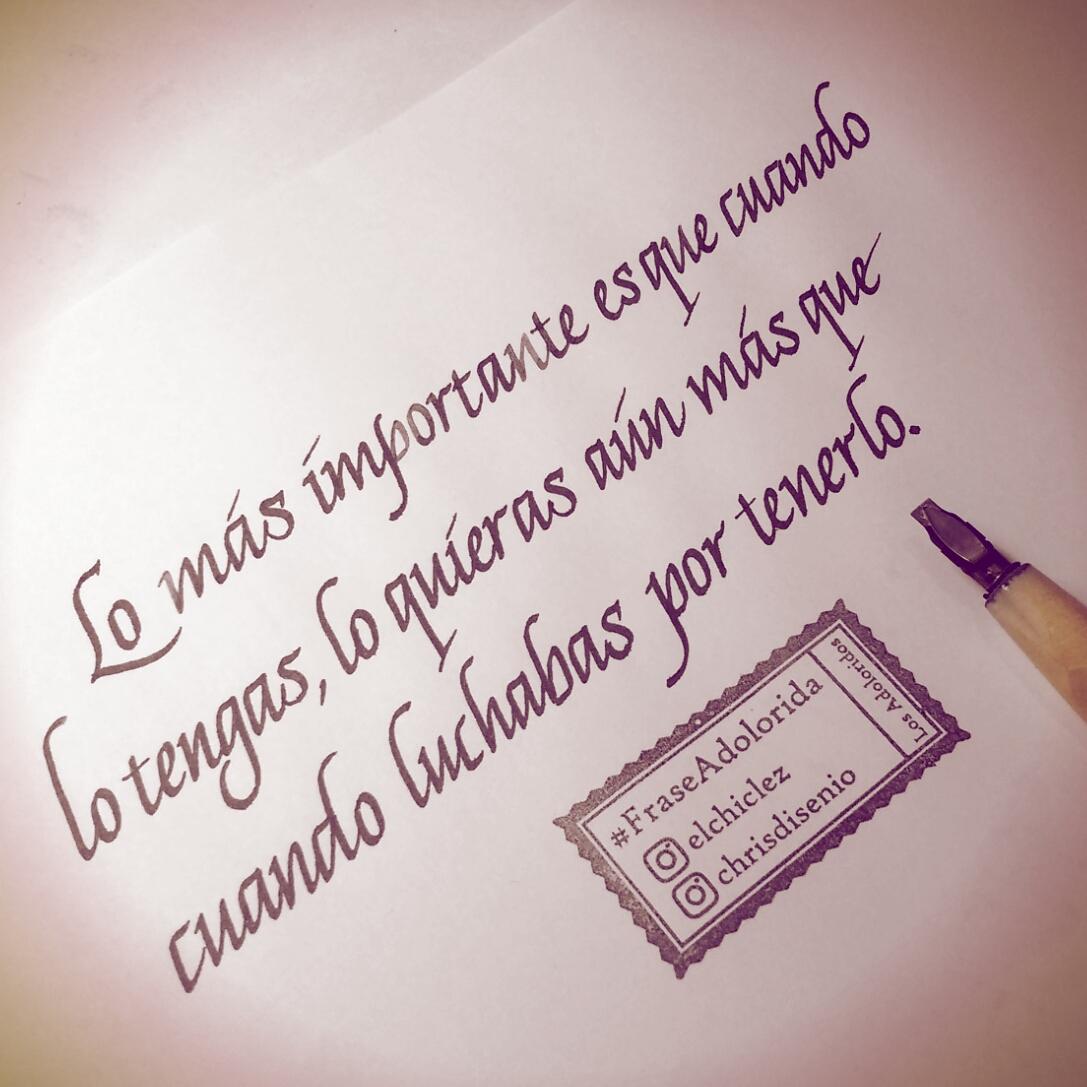 Lo más importante es que cuando
lo tengas, lo quieras aún más que
cuando luchabas por tenerlo.
#FraseAdolorida
elchiclez
chrisdisenio
Los Adoloridos